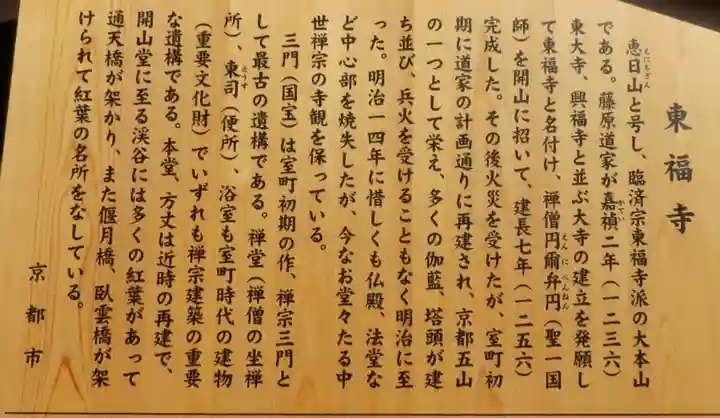 東福寺
恵日山と号し、臨済宗東福寺派の大本山
えにちざん
である。藤原道家が嘉禎二年（一二三六）
かてい
東大寺、興福寺と並ぶ大寺の建立を発願し
て東福寺と名付け、禅僧円爾弁円（聖一国
えんにべんねん
師）を開山に招いて、建長七年（一二五六）
完成した。その後火災を受けたが、室町初
期に道家の計画通りに再建され、京都五山
の一つとして栄え、多くの伽藍、塔頭が建
ち並び、兵火を受けることもなく明治に至
った。明治一四年に惜しくも仏殿、法堂な
ど中心部を焼失したが、今なお堂々たる中
世禅宗の寺観を保っている。
三門（国宝）は室町初期の作、禅宗三門と
して最古の遺構である。禅堂（禅僧の坐禅
所）、東司（便所）、浴室も室町時代の建物
とうす
（重要文化財）でいずれも禅宗建築の重要
な遺構である。本堂、方丈は近時の再建で、
開山堂に至る渓谷には多くの紅葉があって
通天橋が架かり、また偃月橋、臥雲橋が架
けられて紅葉の名所をなしている。
京都市